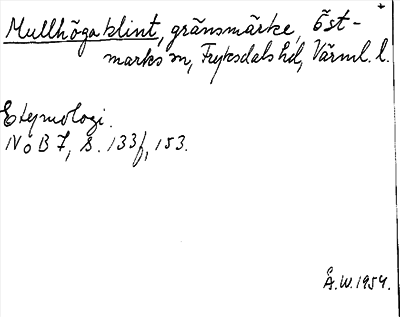 Mullhögaklint, gränsmärke, Öst-
marks sn, Fryksdals hd, Värml. l.
Etymologi.
NoB 7, s. 133f, 153.
Å.W. 1954.